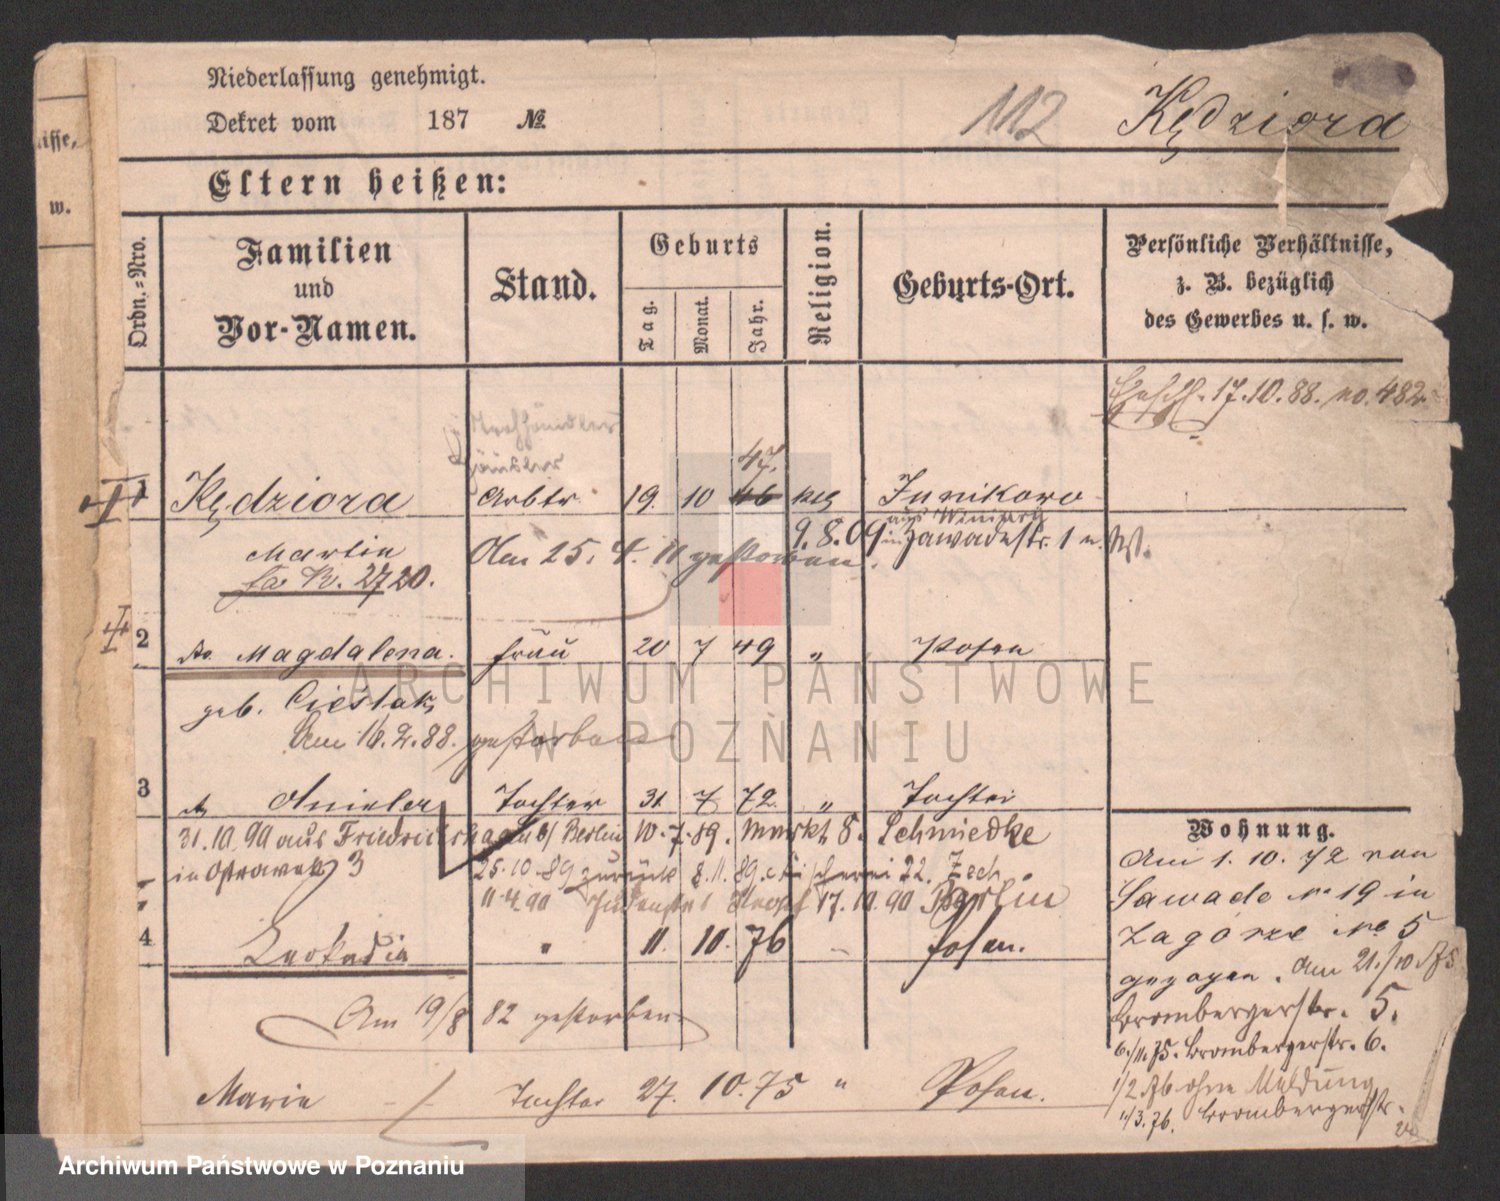 Niederlassung genehmigt.
Dekret vom 187 №
112 Kędziora
isse,
w.
Eltern heißen:
Ordn.-Nro.
Familien
und
Vor-Namen.
Stand.
Geburts
Tag.
Monat.
Jahr.
Religion.
Geburts-Ort.
Persönliche Verhältnisse,
z. B. bezüglich
des Gewerbes u. s. w.
17.10.88. no. 482.
47.
1 Kędziora Arbtr. 19. 10 46 kth Junikowo
aus Winiary
9.8.09 in Zawadestr. 1 n.
Martin Am 25. 4. 11 gestorben.
27 20.
2 Magdalena. Frau 20 7 49 " Posen
geb. Cieślak,
Am 16.2.88. gestorben
3 Aniela Tochter 31. 7 72. "
31.10.90 aus Friedrichshagen b/ Berlin 10.7.89. Markt 8. Schmiedke
in Ostrowek 3
25.10.89 zurück 8.11.89. Fischerei 22. Zech
11.4.90 17.10.90 Berlin
4 Leokadia " 11. 10. 76 Posen.
Am 19/8 82 gestorben
Marie Tochter 27. 10. 75 " Posen.
Wohnung.
Am 1. 10. 72 von
Zawade No 19 in
Zagórze No 5
gezogen. Am 21./10 75
Brombergerstr. 5.
6./11.75. Brombergerstr. 6.
1/2 76 ohne Meldung
11/3.76. Brombergerstr.
ARCHIWUM PAŃSTWOWE
W POZNANIU
Archiwum Państwowe w Poznaniu